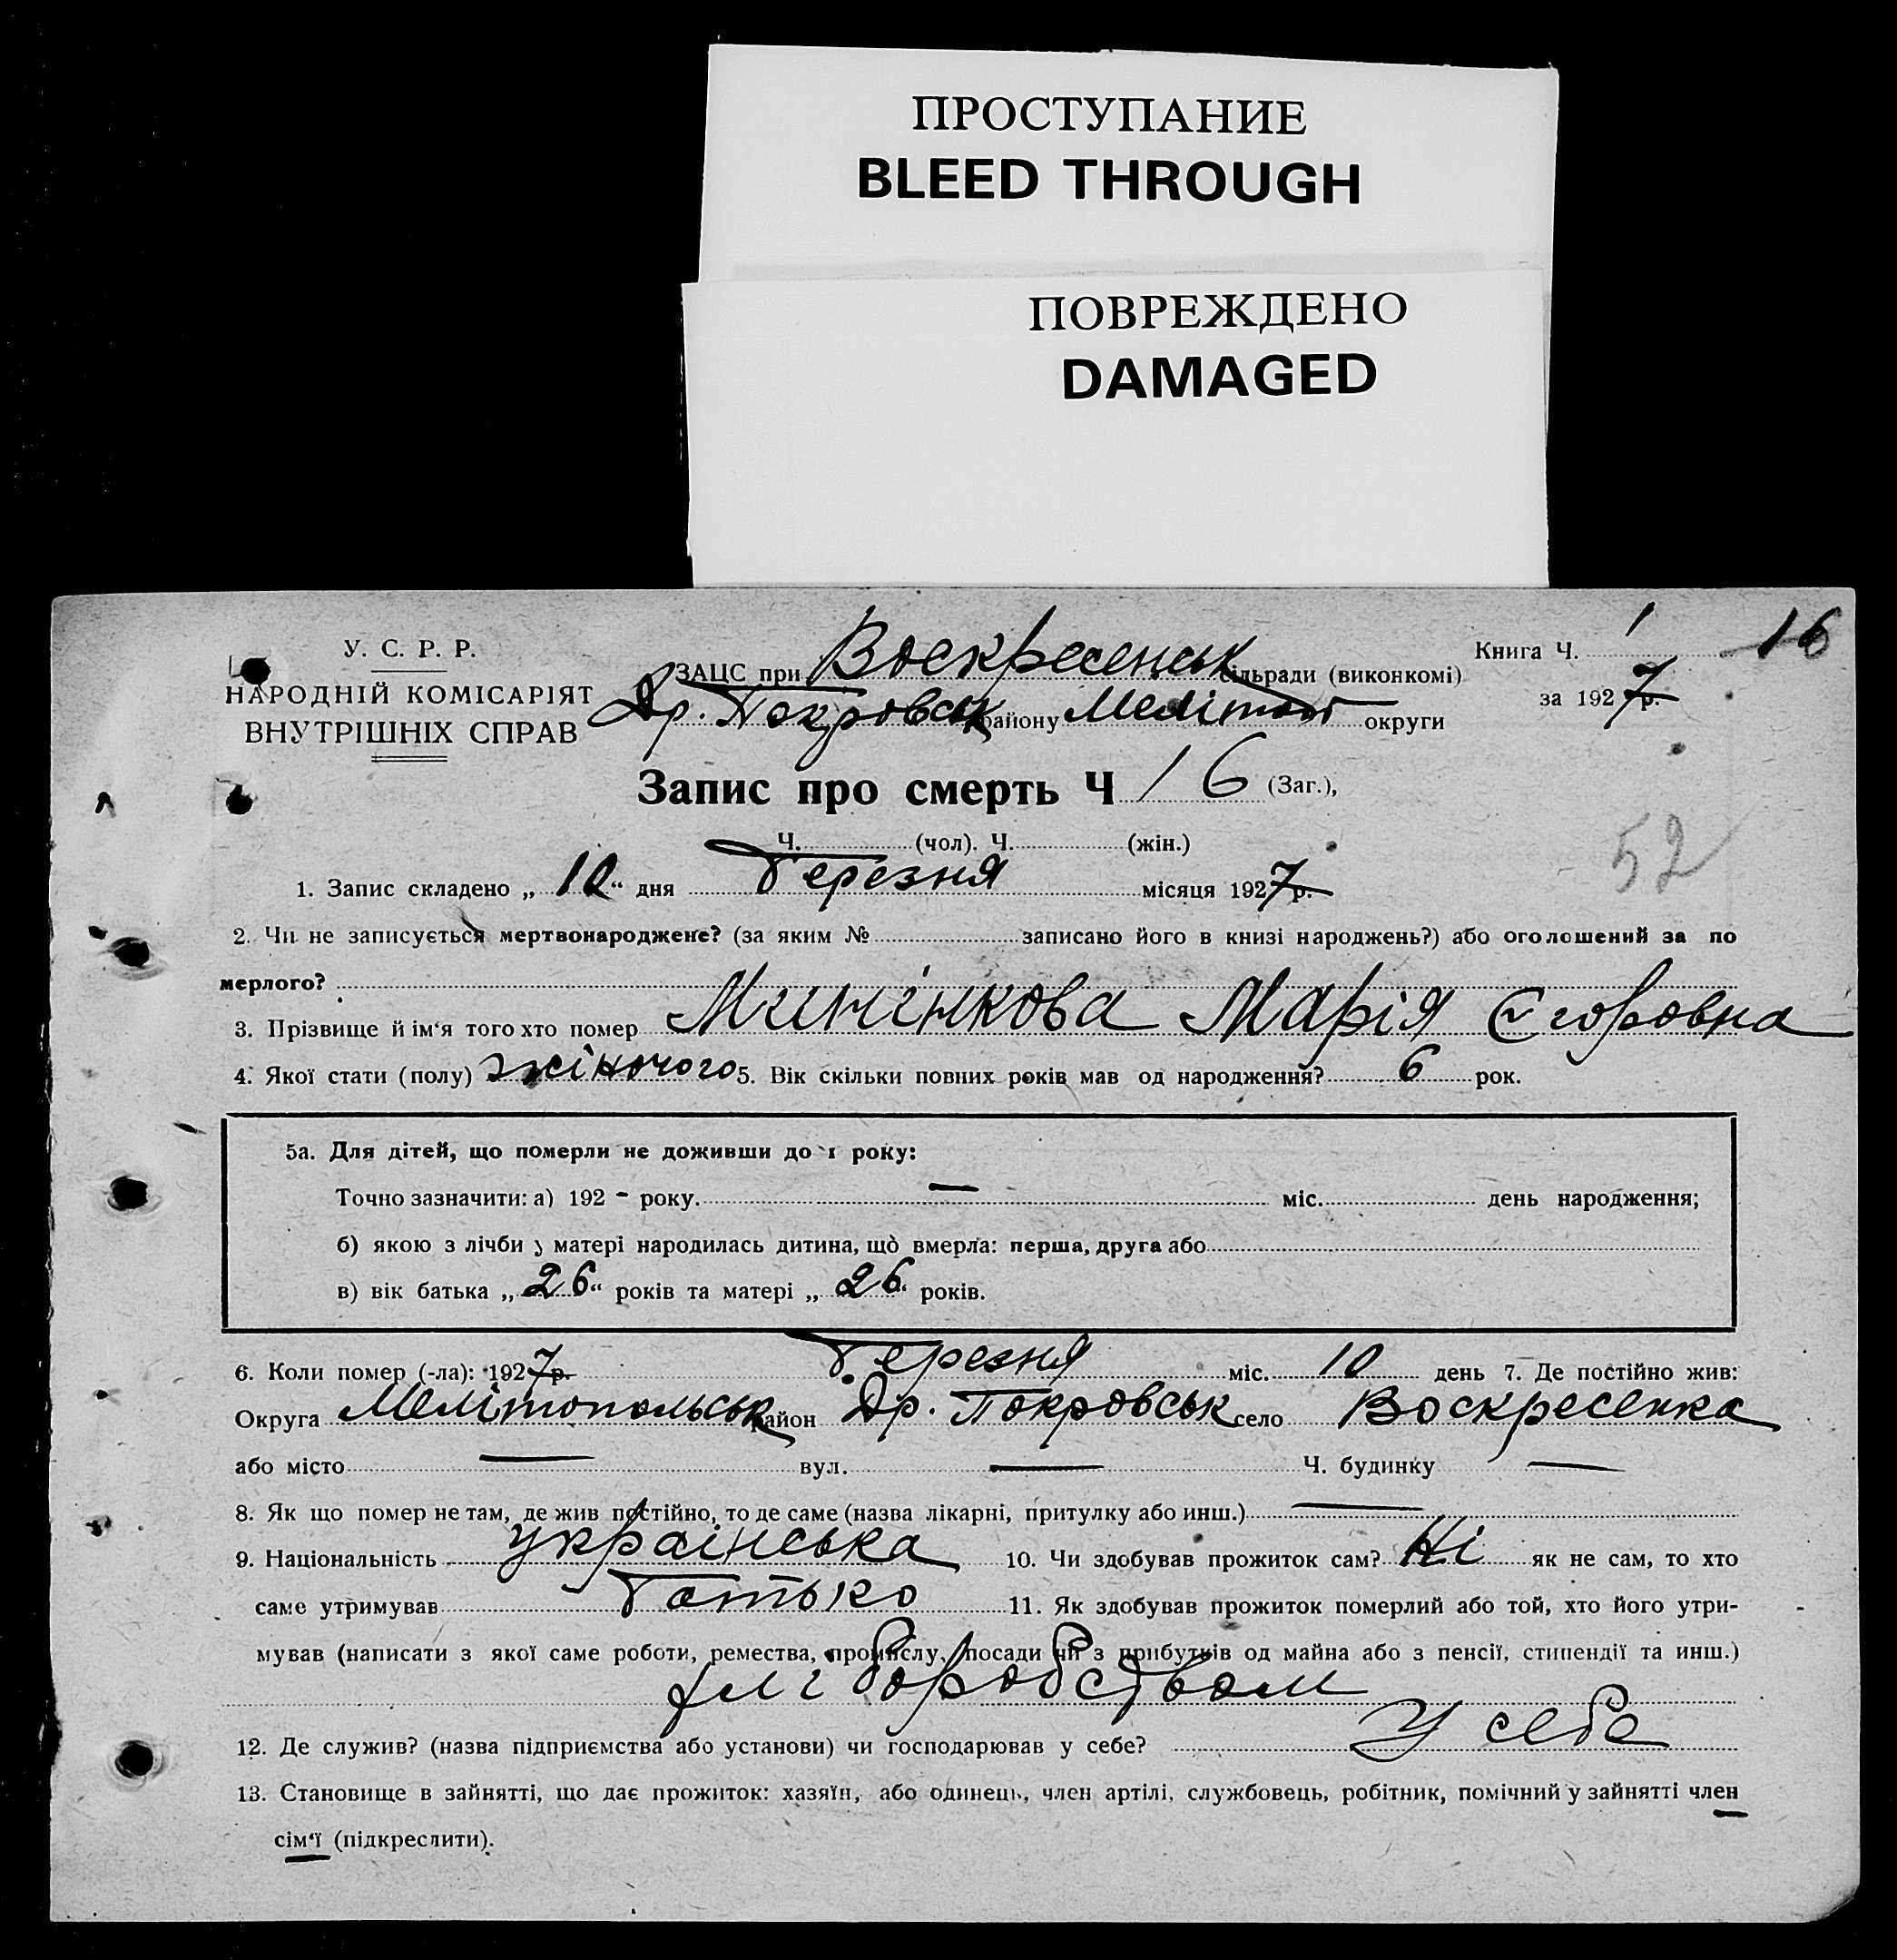 ПРОСТУПАНИЕ
BLEED THROUGH
ПОВРЕЖДЕНО
DAMAGED
У. С. Р. Р.
НАРОДНІЙ КОМІСАРІЯТ
ВНУТРІШНІХ СПРАВ
ЗАЦС при Воскресенськ сільради (виконкомі)
Др. Покровськ району Меліт округи
Книга Ч. 1 16
за 1927 р.
Запис про смерть Ч 16 (Заг.),
Ч. (чол). Ч. (жін.)
52
1. Запис складено „ 10 “ дня Березня місяця 1927 р.
2. Чи не записується мертвонароджене? (за яким № записано його в книзі народжень?) або оголошений за по
мерлого?
3. Прізвище й ім‘я того хто помер Минінкова Марія Єгоровна
4. Якої стати (полу) жіночого 5. Вік скільки повних років мав од народження? 6 рок.
5а. Для дітей, що померли не доживши до 1 року:
Точно зазначити: а) 192 - року. — міс. день народження;
б) якою з лічби у матері народилась дитина, що вмерла: перша, друга або
в) вік батька „ 26 “ років та матері „ 26 “ років.
6. Коли помер (-ла): 1927 р. Березня міс. 10 день 7. Де постійно жив:
Округа Мелітопольськ район Др. Покровськ село Воскресенка
або місто — вул. — Ч. будинку —
8. Як що помер не там, де жив постійно, то де саме (назва лікарні, притулку або инш.) —
9. Національність українська 10. Чи здобував прожиток сам? Ні як не сам, то хто
саме утримував Батько 11. Як здобував прожиток померлий або той, хто його утри-
мував (написати з якої саме роботи, ремества, промислу, посади чи з прибутків од майна або з пенсії, стипендії та инш.)
хліборобством
12. Де служив? (назва підприємства або установи) чи господарював у себе? У себе
13. Становище в зайнятті, що дає прожиток: хазяїн, або одинець, член артілі, службовець, робітник, помічний у зайнятті член
сім‘ї (підкреслити).